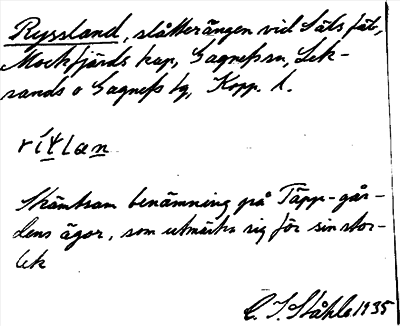 Ryssland, slåtterängen vid Säls fäb,
Mockfjärds kap, Gagnefs sn, Lek-
sands o Gagnefs tg, Kopp. l.
Skämtsam benämning på Täpp-går-
dens ägor, som utmärka sig för sin stor-
lek
C. I. Ståhle 1935